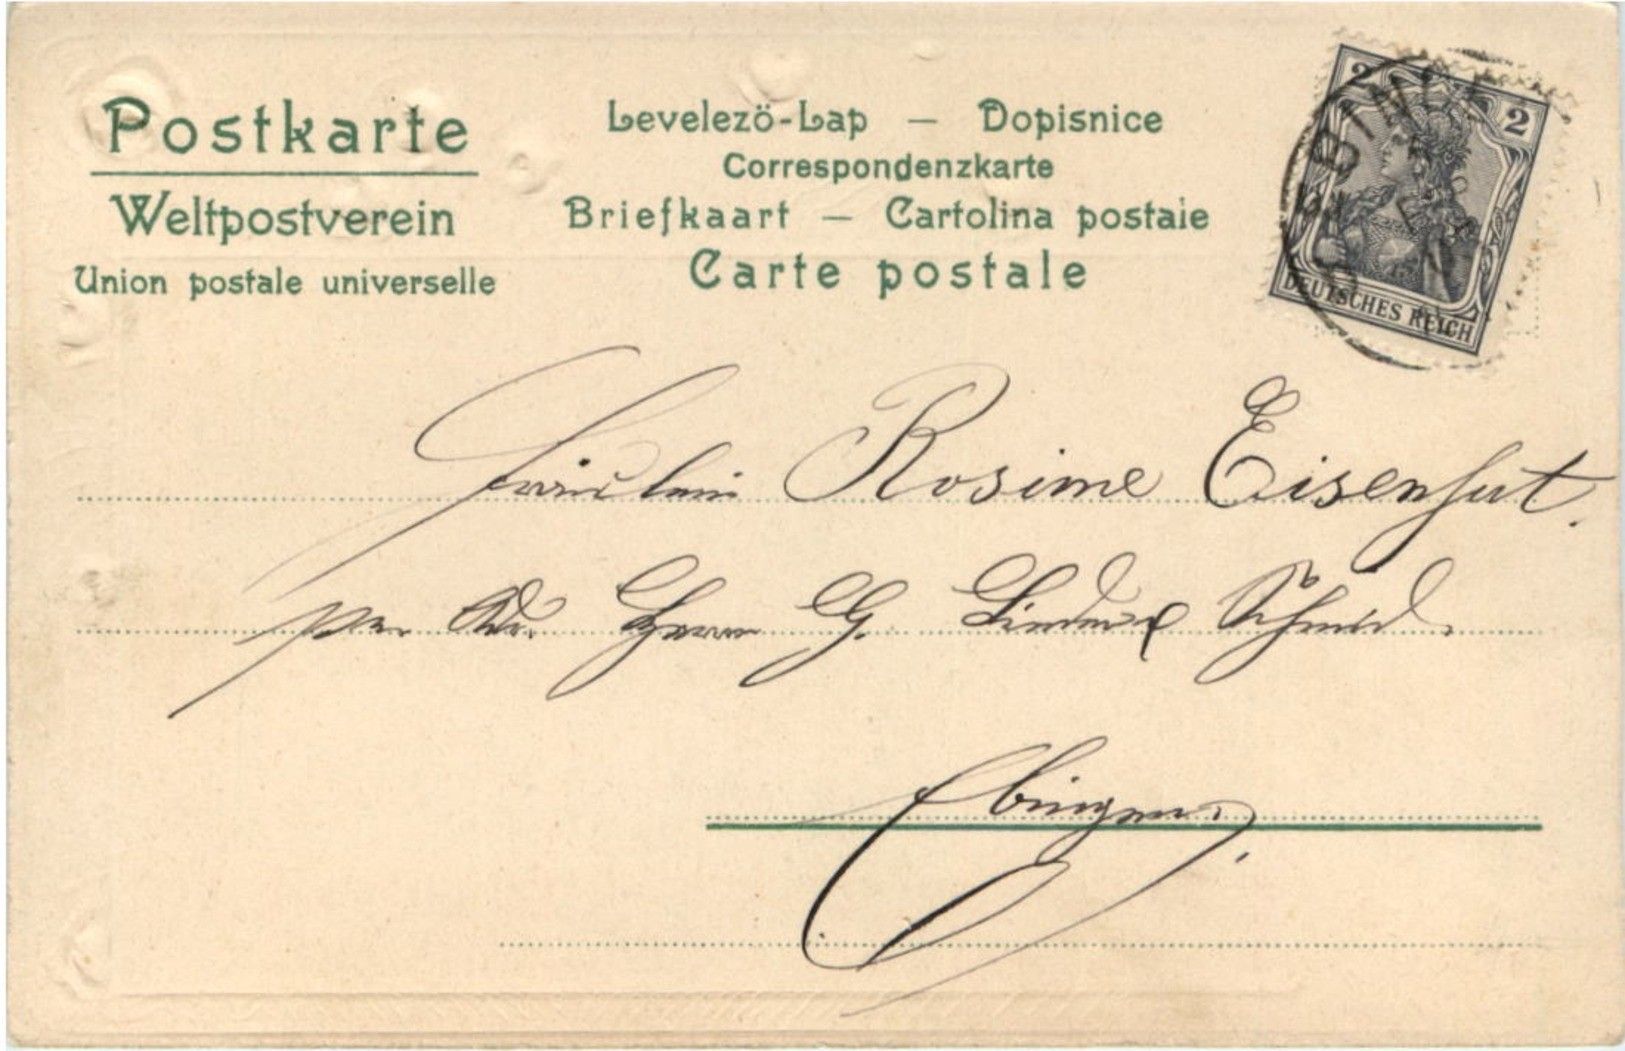 Postkarte
Weltpostverein
Union postale universelle
Levelezö-Lap — Dopisnice
Correspondenzkarte
Briefkaart — Cartolina postale
Carte postale
2 2
EBINGEN
DEUTSCHES REICH
Fräulein Rosine Eisenhut.
per Adr. Herrn G. Schmid.
Ebingen.